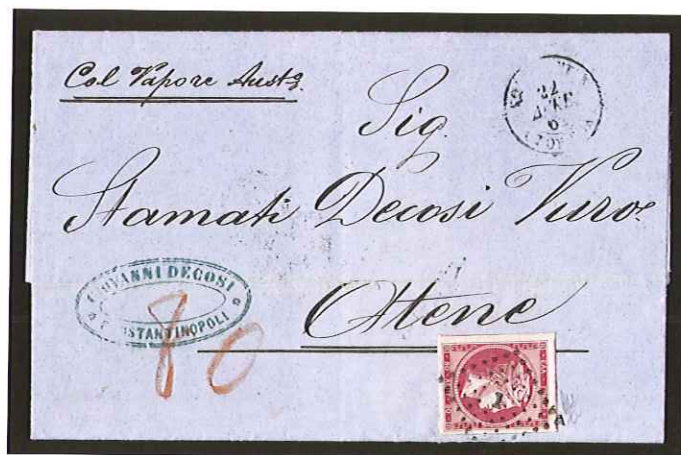 Col Vapore Austº.
Sig.
Stamati Decosi Vuros
GIOVANNI DECOSI
COSTANTINOPOLI
80
Atene